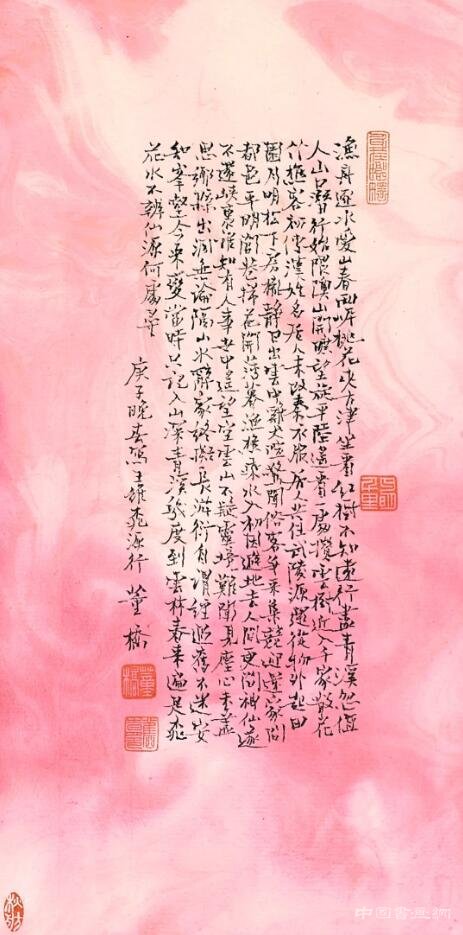 漁舟逐水愛山春兩岸桃花夾古津坐看紅樹不知遠行盡青溪忽值
人山口潛行始隈隩山開曠望旋平陸遙看一處攢雲樹近入千家散花
竹樵客初傳漢姓名居人未改秦衣服居人共住武陵源還從物外起田
園月明松下房櫳靜日出雲中雞犬喧驚聞俗客爭來集競迎還家問
都邑平明閭巷掃花開薄暮漁樵乘水入初因避地去人間更問神仙遂
不還峽裏誰知有人事世中遙望空雲山不疑靈境難聞見塵心未盡
思鄉縣出洞無論隔山水辭家終擬長游衍自謂經過舊不迷安
知峯壑今來變當時只記入山深青溪幾度到雲林春來遍是桃
花水不辨仙源何處尋
庚子晚春寫王維桃源行 董橋
董橋